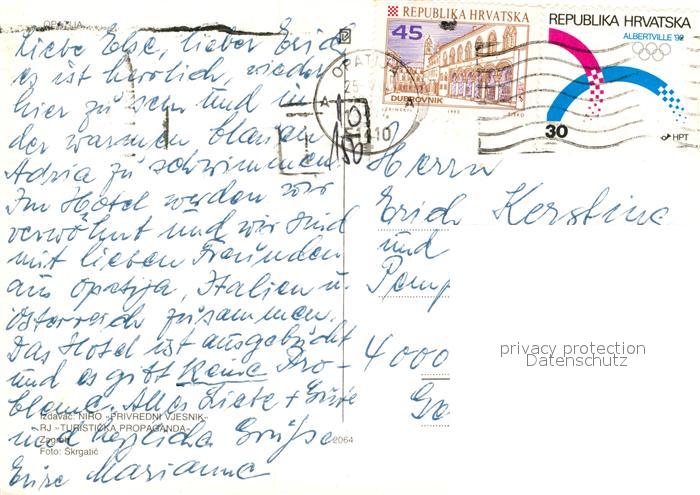 OPATIJA
Liebe Else, lieber Erich,
es ist herrlich, wieder
hier zu sein und in
der warmen blauen
Adria zu schwimmen
Im Hotel werden wir
verwöhnt und wir sind
mit lieben Freunden
aus Opatija, Italien u.
Österreich zusammen.
Das Hotel ist ausgebucht
und es gibt keine Pro-
bleme. Alles Liebe + Gute
und herzliche Grüsse
Eure Marianne
Izdavač: NIRO »PRIVREDNI VJESNIK«
RJ »TURISTIČKA PROPAGANDA«
Zagreb
Foto: Škrgatić
2064
45
REPUBLIKA HRVATSKA
DUBROVNIK
REPUBLIKA HRVATSKA
ALBERTVILLE '92
30
HPT
OPATIJA
25
10
Herrn
Erich
und
4000
privacy protection
Datenschutz